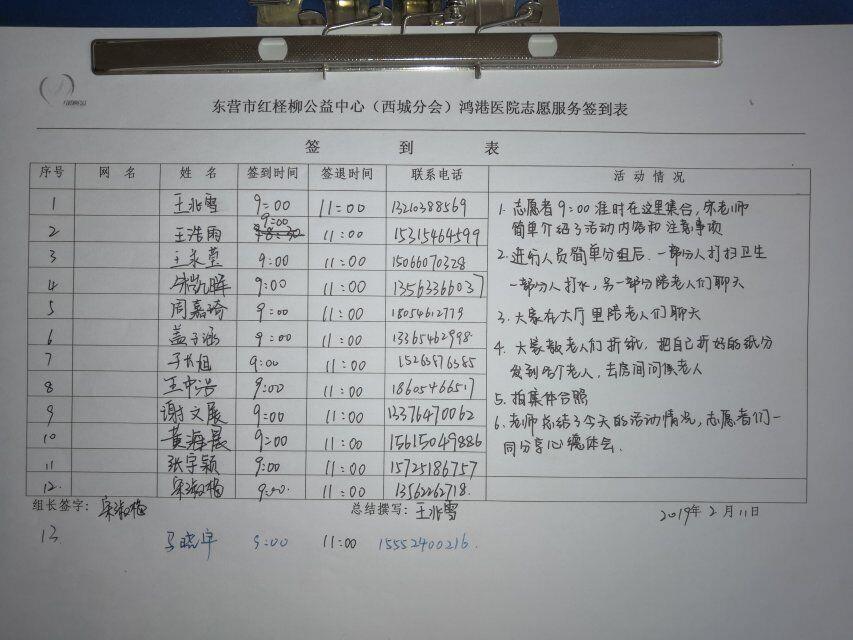 东营市红柽柳公益中心（西城分会）鸿港医院志愿服务签到表
签 到 表
序号 网 名 姓 名 签到时间 签退时间 联系电话 活动情况
1 王兆雪 9:00 11:00 13210388569
2 王浩雨 9:00 11:00 15315464599
3 王永莹 9:00 11:00 15066070328
4 9:00 11:00 13563366037
5 周嘉琦 9:00 11:00 18054612719
6 盖子涵 9:00 11:00 13365462998
7 9:00 11:00 15263876585
8 王中浩 9:00 11:00 18605466517
9 谢文展 9:00 11:00 13376470062
10 黄海晨 9:00 11:00 15615049886
11 张宇颖 9:00 11:00 15725186757
12. 宋淑梅 9:00. 11:00 13562262718.
1. 志愿者9:00准时在这里集合,宋老师
简单介绍了活动内容和注意事项
2. 进行人员简单分组后.一部分人打扫卫生
一部分人打水,另一部分陪老人们聊天
3. 大家在大厅里陪老人们聊天
4. 大家教老人们折纸,把自己折好的纸分
发到各个老人,去房间问候老人
5. 拍集体合照
6. 老师总结了今天的活动情况,志愿者们一
同分享心德体会.
组长签字: 宋淑梅 总结撰写: 王兆雪 2019年2月11日
13 马晓宇 9:00 11:00 15552400216.